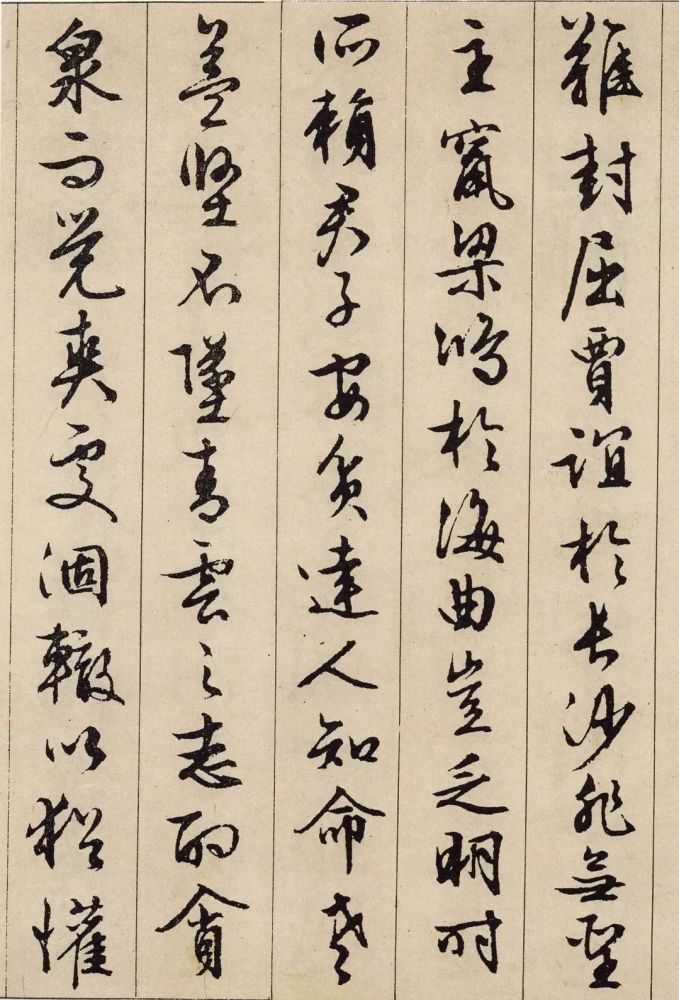 難封屈賈誼於長沙非無聖
主竄梁鴻於海曲豈乏明時
所賴君子安貧達人知命老
益堅不墜青雲之志酌貪
泉而覺爽處涸轍以猶懽